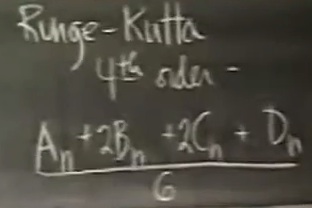 Runge-Kutta
4th order -
Aₙ + 2Bₙ + 2Cₙ + Dₙ
6